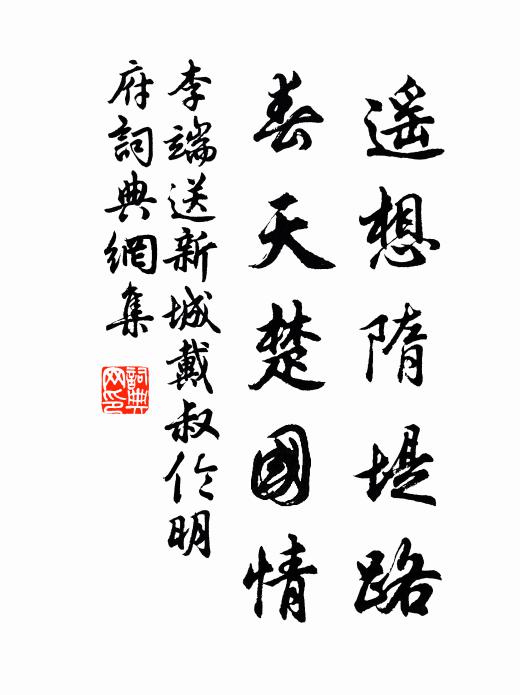 遥想隋堤路
春天楚國情
李端送新城戴叔伦明
府詞典網集
詞典网印